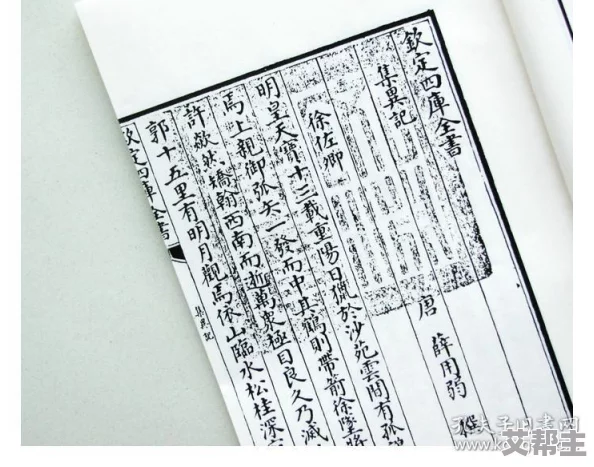 欽定四庫全書
集異記
唐 薛用弱 撰
徐佐卿
明皇天寶十三載重陽日獵於沙苑雲間有孤
馬上親御弧矢一發而中其鶴則帶箭徐墜將
許欻然矯翰西南而逝萬衆極目良久乃滅
郭十五里有明月觀焉依山臨水松桂深
欽定四庫全書
集異記
孔夫子旧书网
艾帮主